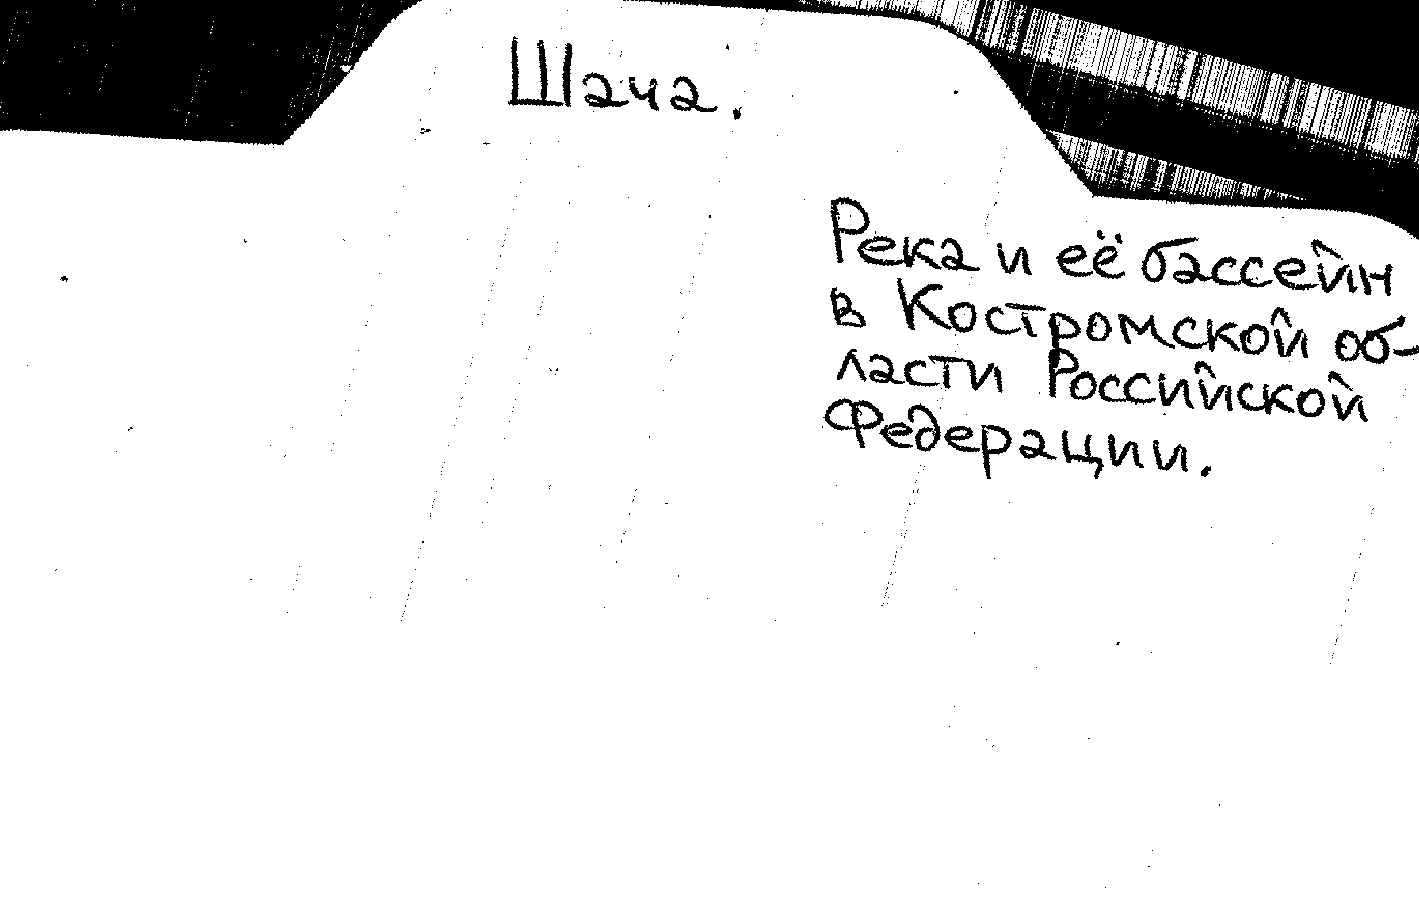 Шача.
Река и её бассейн
в Костромской об-
ласти Российской
Федерации.